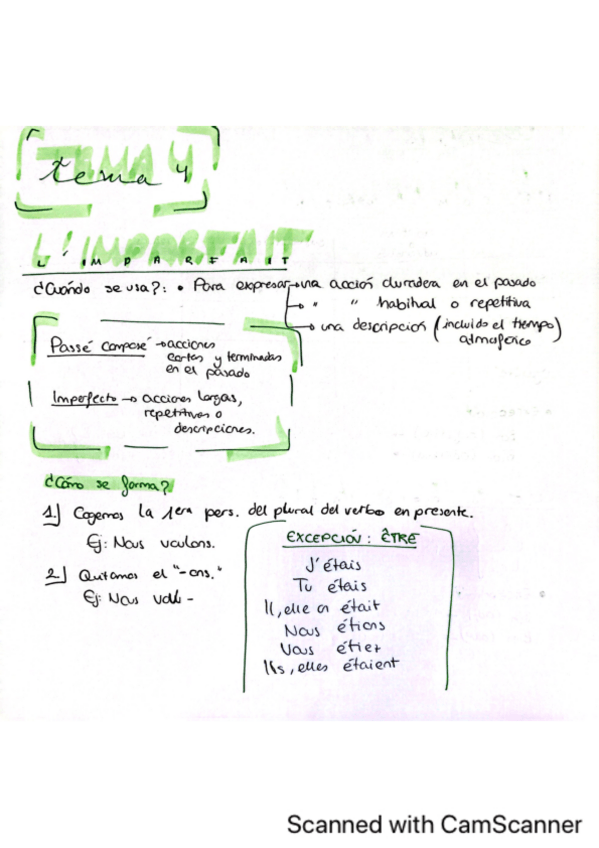 TEMA 4
tema 4
L'IMPARFAIT
L'IMPARFAIT
¿Cuándo se usa?: • Para expresar → una acción duradera en el pasado
→ " " habitual o repetitiva
→ una descripción (incluido el tiempo
atmosférico)
Passé composé → acciones
cortas y terminadas
en el pasado
Imperfecto → acciones largas,
repetitivas o
descripciones.
¿Cómo se forma?
1.] Cogemos la 1era pers. del plural del verbo en presente.
Ej: Nous voulons.
2.] Quitamos el "-ons."
Ej: Nous voul-
EXCEPCIÓN: ÊTRE
J'étais
Tu étais
Il, elle on était
Nous étions
Vous étiez
Ils, elles étaient
Scanned with CamScanner